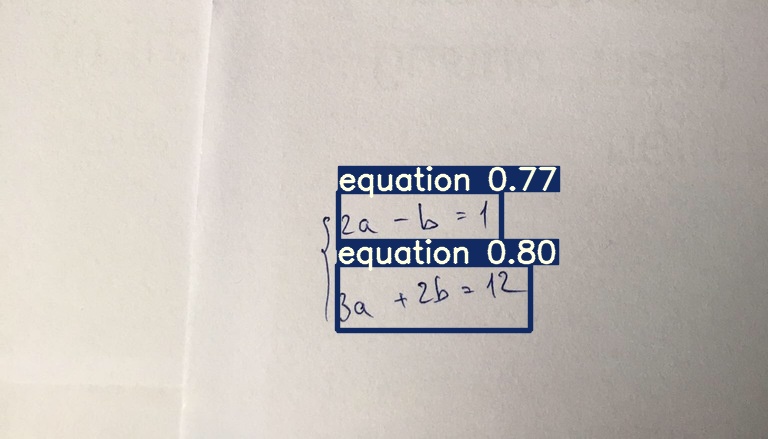 equation 0.77
2a - b = 1
equation 0.80
3a + 2b = 12